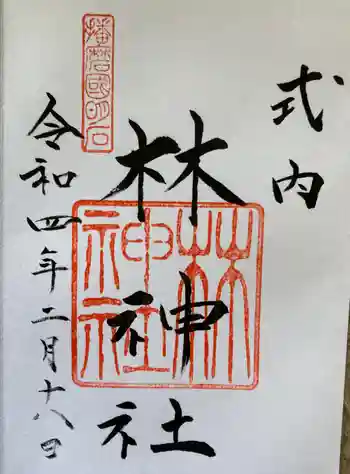 式内
播磨國明石
林神社
林神社
令和四年二月十八日